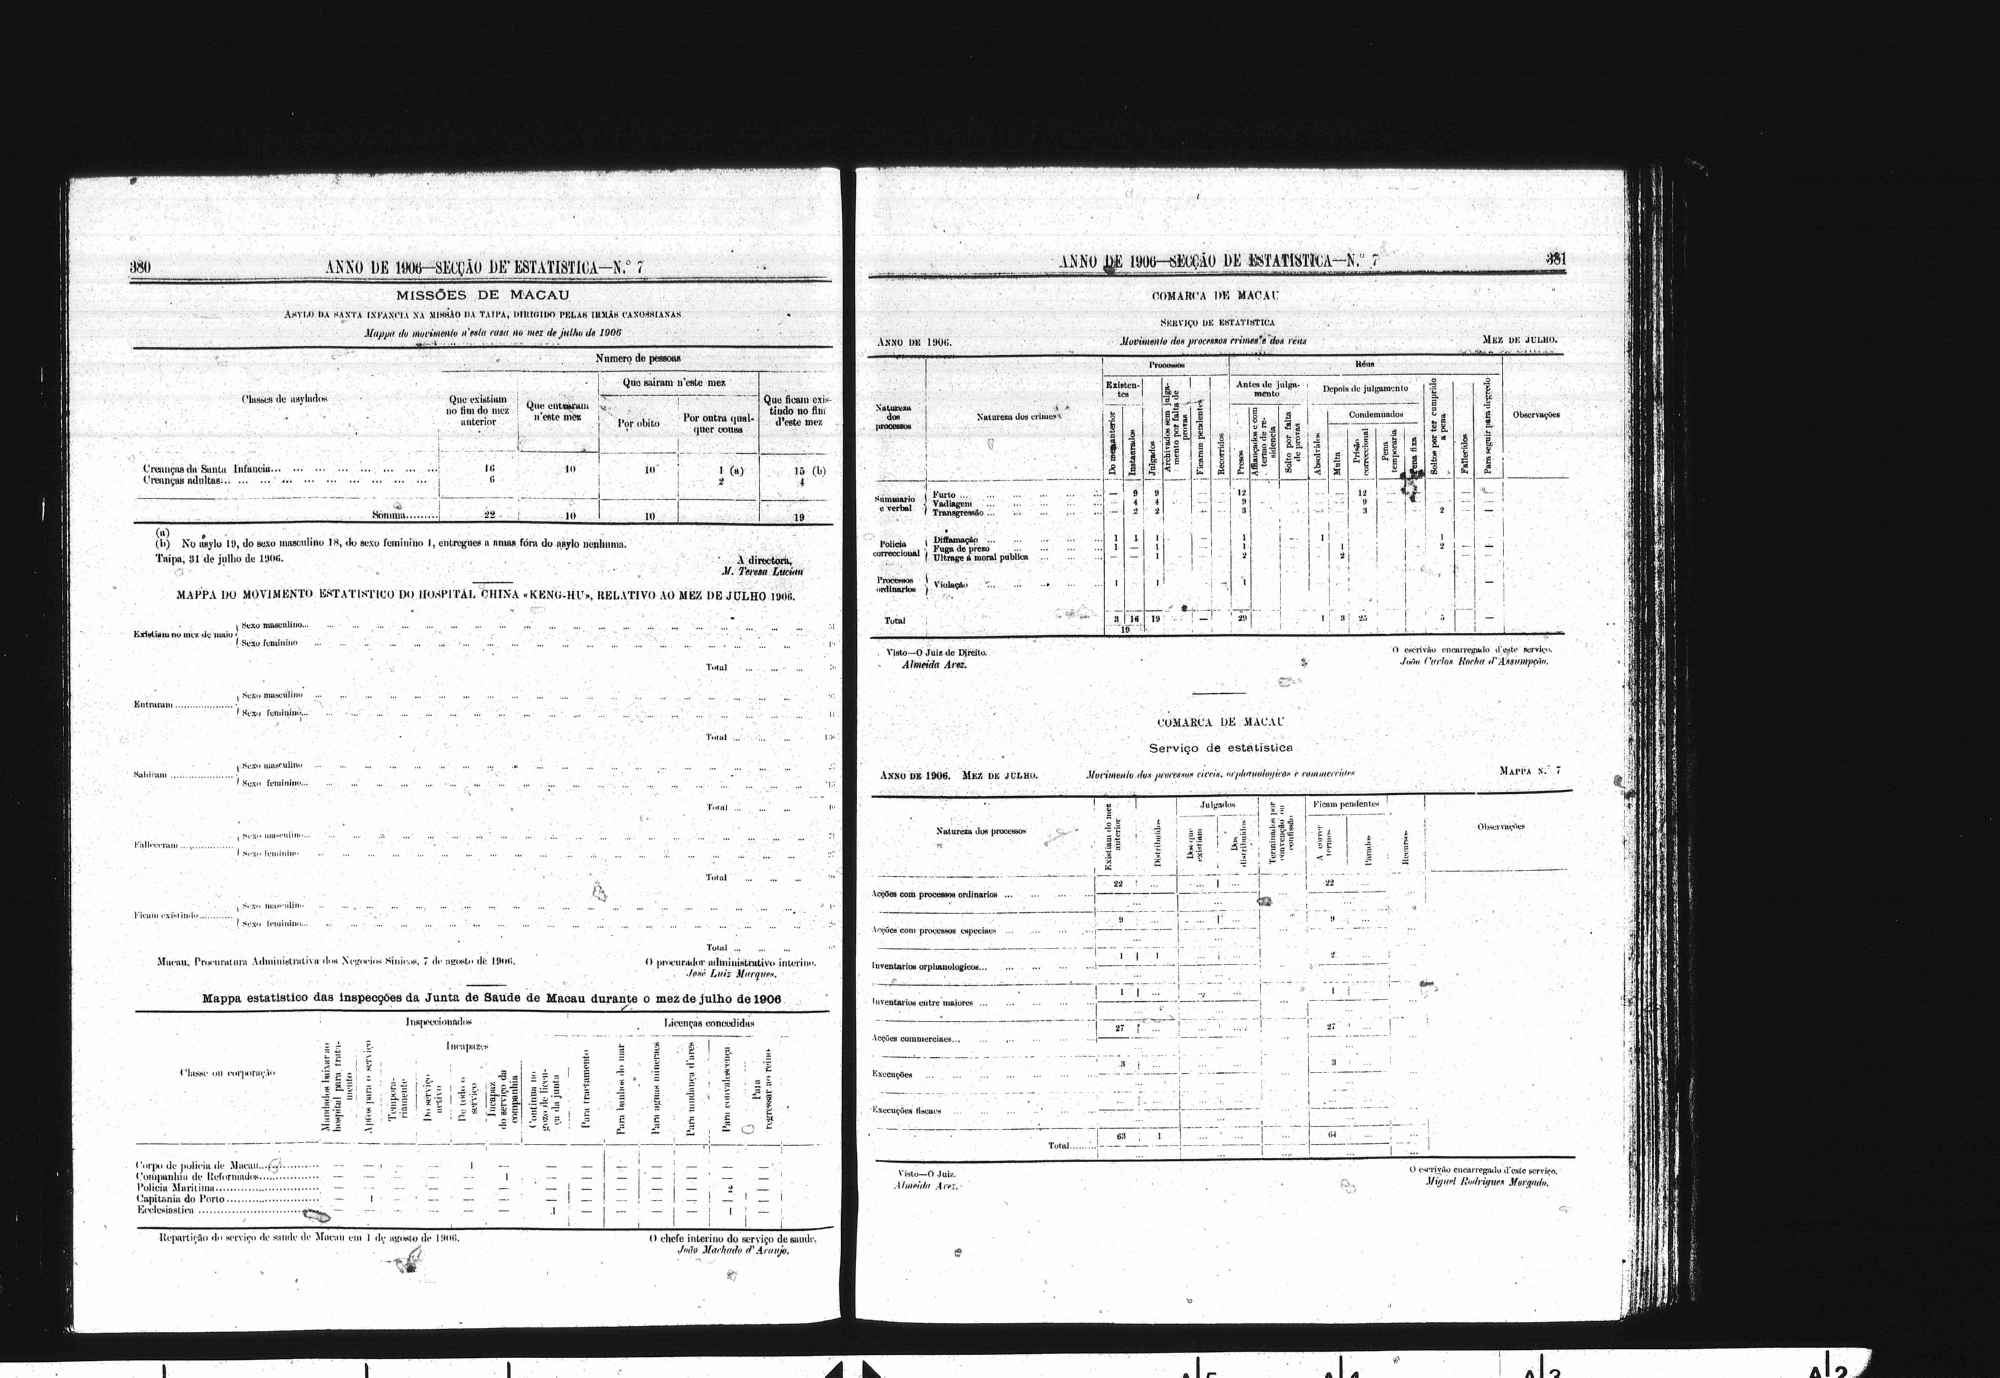 380
ANNO DE 1906—SECÇÃO DE ESTATISTICA—N.º 7
MISSÕES DE MACAU
ASYLO DA SANTA INFANCIA NA MISSÃO DA TAIPA, DIRIGIDO PELAS IRMÃS CANOSSIANAS
Mappa do movimento n'esta casa no mez de julho de 1906
Numero de pessoas
Classes de asylados
Que existiam no fim do mez anterior
Que entraram n'este mez
Que sairam n'este mez
Por obito
Por outra qualquer cousa
Que ficam existindo no fim d'este mez
Creanças da Santa Infancia... 16 10 10 1 (a) 15 (b)
Creanças adultas... 6 2 4
Somma......... 22 10 10 19
(a)
(b) No asylo 19, do sexo masculino 18, do sexo feminino 1, entregues a amas fóra do asylo nenhuma.
Taipa, 31 de julho de 1906.
A directora,
M. Teresa Lucian
MAPPA DO MOVIMENTO ESTATISTICO DO HOSPITAL CHINA «KENG-HU», RELATIVO AO MEZ DE JULHO 1906.
Existiam no mez de maio
Sexo masculino...
Sexo feminino ...
Total ...
Entraram
Sexo masculino ...
Sexo feminino...
Total ...
Sahiram
Sexo masculino ...
Sexo feminino...
Total ...
Falleceram
Sexo masculino...
Sexo feminino ...
Total ...
Ficam existindo
Sexo masculino ...
Sexo feminino...
Total ...
Macau, Procuratura Administrativa dos Negocios Sinicos, 7 de agosto de 1906.
O procurador administrativo interino.
José Luiz Marques.
Mappa estatistico das inspecções da Junta de Saude de Macau durante o mez de julho de 1906
Inspeccionados
Licenças concedidas
Incapazes
Classe ou corporação
Mandados baixar ao hospital para tratamento
Aptos para o serviço
Temporariamente
Do serviço activo
De todo o serviço
Incapaz do serviço da companhia
Continua no gozo de licença da junta
Para tractamento
Para banhos do mar
Para aguas mineraes
Para mudança d'ares
Para convalescença
Para regressar ao reino
Corpo de policia de Macau... — — — — 1 — — — — — — — —
Companhia de Reformados... — — — — — 1 — — — — — — —
Policia Maritima... — — — — — — — — — — — 2 —
Capitania do Porto... — 1 — — — — — — — — — — —
Ecclesiastica ... — — — — — — 1 — — — — 1 —
Repartição do serviço de saude de Macau em 1 de agosto de 1906.
O chefe interino do serviço de saude,
João Machado d'Araujo.
ANNO DE 1906—SECÇÃO DE ESTATISTICA—N.º 7
381
COMARCA DE MACAU
SERVIÇO DE ESTATISTICA
ANNO DE 1906.
Movimento dos processos crimes e dos réus
MEZ DE JULHO.
Processos
Réus
Natureza dos processos
Natureza dos crimes
Existentes
Do mez anterior
Instaurados
Julgados
Archivados sem julgamento por falta de provas
Ficaram pendentes
Recorridos
Antes de julgamento
Presos
Affiançados e com termo de residencia
Solto por falta de provas
Depois de julgamento
Absolvidos
Condemnados
Multa
Prisão correccional
Pena temporaria
Pena fixa
Soltos por ter cumprido a pena
Fallecidos
Para seguir para degredo
Observações
Summario e verbal
Furto ... — 9 9 12 12
Vadiagem ... — 4 4 9 9
Transgressão ... — 2 2 3 3 2
Policia correccional
Diffamação ... 1 1 1 1 1 1
Fuga de preso ... 1 — 1 1 1 2
Ultrage á moral publica ... — — 1 2 2
Processos ordinarios
Violação ... 1 1 1
Total 3 16 19 — 29 1 3 25 5 —
19
Visto—O Juiz de Direito.
Almeida Arez.
O escrivão encarregado d'este serviço.
João Carlos Rocha d'Assumpção.
COMARCA DE MACAU
Serviço de estatistica
ANNO DE 1906. MEZ DE JULHO.
Movimento dos processos civeis, orphanologicos e commerciaes
MAPPA N.º 7
Natureza dos processos
Existiam do mez anterior
Distribuidos
Julgados
Dos que existiam
Dos distribuidos
Terminados por convenção ou confissão
Ficam pendentes
A correr termos
Parados
Recursos
Observações
Acções com processos ordinarios ... 22 ... 22 ...
Acções com processos especiaes ... 9 ... 9 ...
Inventarios orphanologicos... 1 1 ... 2 ...
Inventarios entre maiores ... 1 ... 1 ...
Acções commerciaes... 27 ... 27 ...
Execuções ... 3 ... 3 ...
Execuções fiscaes ...
Total....... 63 1 ... 64 ...
Visto—O Juiz.
Almeida Arez.
O escrivão encarregado d'este serviço,
Miguel Rodrigues Morgado.
A5
A4
A3
A2